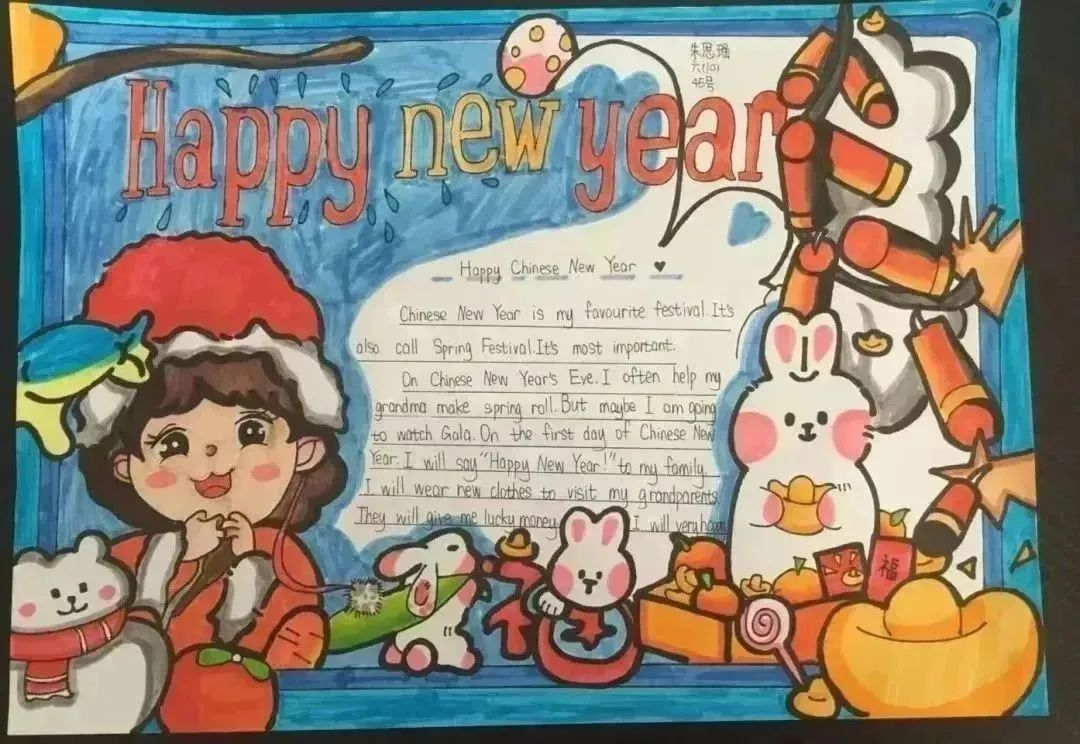 朱思瑶
六(10)
45号
Happy new year
Happy Chinese New Year
Chinese New Year is my favourite festival. It's
also call Spring Festival. It's most important.
On Chinese New Year's Eve. I often help my
grandma make spring roll. But maybe I am going
to watch Gala. On the first day of Chinese New
Year. I will say "Happy New Year!" to my family.
I will wear new clothes to visit my grandparents
They will give me lucky money I will very happy
福